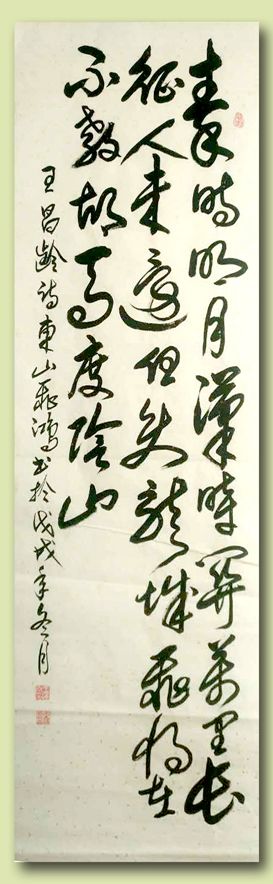 秦時明月漢時關萬里長
征人未還但使龍城飛將在
不教胡馬度陰山
王昌齡詩東山飛鴻书於戊戌年冬月